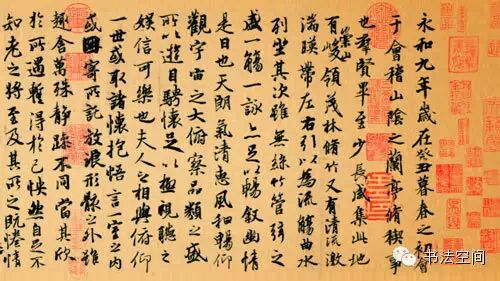 永和九年歲在癸丑暮春之初會
于會稽山陰之蘭亭脩稧事
也羣賢畢至少長咸集此地
有崇山峻領茂林脩竹又有清流激
湍暎帶左右引以為流觴曲水
列坐其次雖無絲竹管弦之
盛一觴一詠亦足以暢敘幽情
是日也天朗氣清惠風和暢仰
觀宇宙之大俯察品類之盛
所以遊目騁懷足以極視聽之
娛信可樂也夫人之相與俯仰
一世或取諸懷抱悟言一室之內
或因寄所託放浪形骸之外雖
趣舍萬殊靜躁不同當其欣
於所遇蹔得於己怏然自足不
知老之將至及其所之既惓情
书法空间